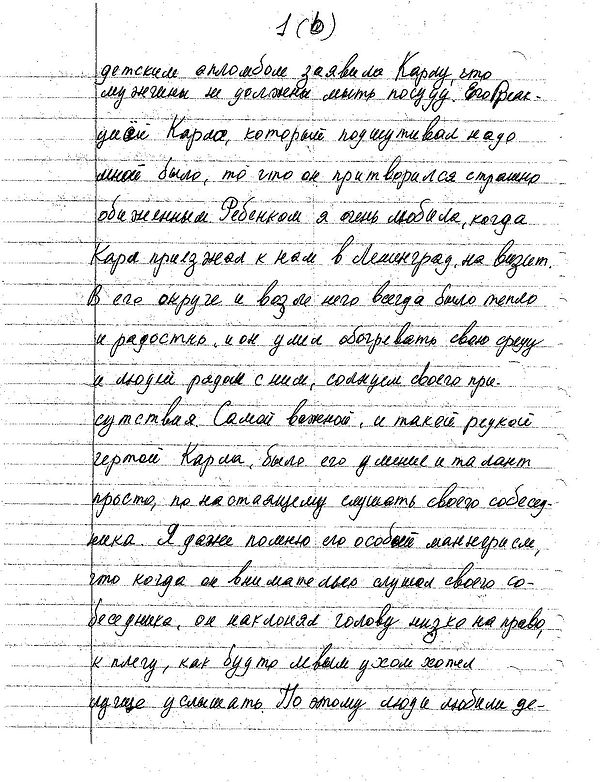 1 (b)
детским апломбом заявила Карлу, что
мужчины не должны мыть посуду. Его Реак-
цией Карла, который подшутивал надо
мной было, то что он притворился страшно
обиженным. Ребенком я очень любила, когда
Карл приезжал к нам в Ленинград, на визит.
В его округе и возле него всегда было тепло
и радостно, и он умел обогревать свою среду
и людей рядом с ним, солнцем своего при-
сутствия. Самой важной, и такой редкой
чертой Карла, было его умение и талант
просто, по настаящему слушать своего собесед-
ника. Я даже помню его особый маннерисм,
что когда он внимательно слушал своего со-
беседника, он наклонял голову низко на право,
к плечу, как будто левым ухом хотел
лучше услышать. По этому люди любили де-